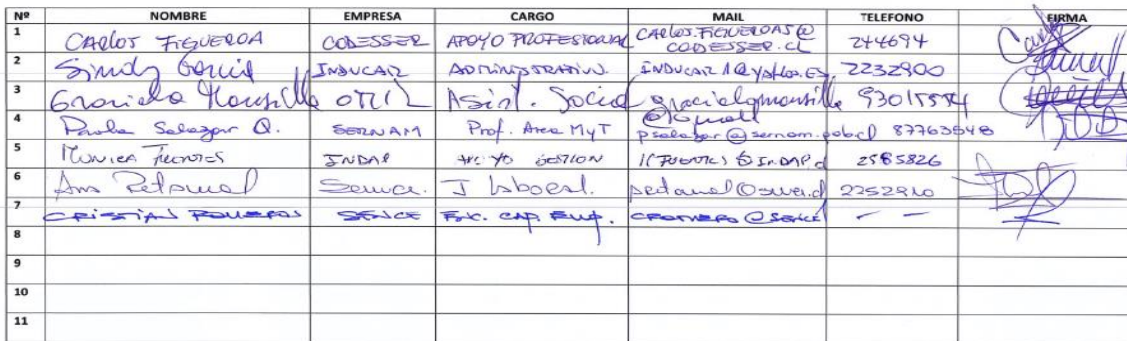 Nº NOMBRE EMPRESA CARGO MAIL TELEFONO FIRMA
1 CARLOS FIGUEROA CODESSER APOYO PROFESIONAL CARLOS.FIGUEROAS@
CODESSER.CL 244694
2 Sindy García INDUCAR ADMINISTRATIVO INDUCAR1@YAHOO.ES 2232900
3 Graciela Mansilla OTIC Asist. Social gracielamansilla 93015554
@Gmail
4 Paola Salazar Q. SERNAM Prof. Area MyT psalazar@sernam.gob.cl 87763548
5 MONICA FUENTES INDAP APOYO GESTION @INDAP.cl 2585826
6 Ana Retamal Sence. J laboral. @sence.cl 2252910
7 CRISTIAN ROMEROS SENCE CAP. Emp. CROMERO@SENCE
8
9
10
11